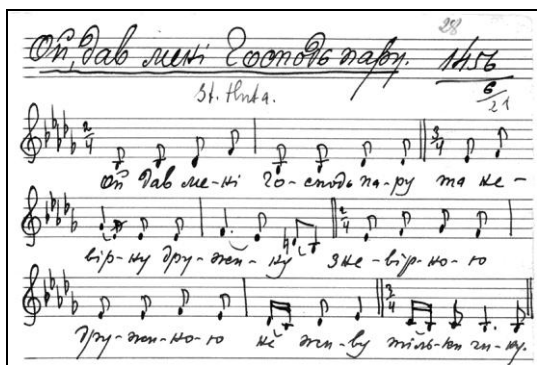 28
Ой, дав мені Господь пару. 1456
6/21
St. Huta.
2/4 3/4
Ой дав ме-ні Го-сподь па-ру та не-
2/4
вір-ну дру-жи-ну З не-вір-но-ю
3/4
дру-жи-но-ю не жи-ву тіль-ки